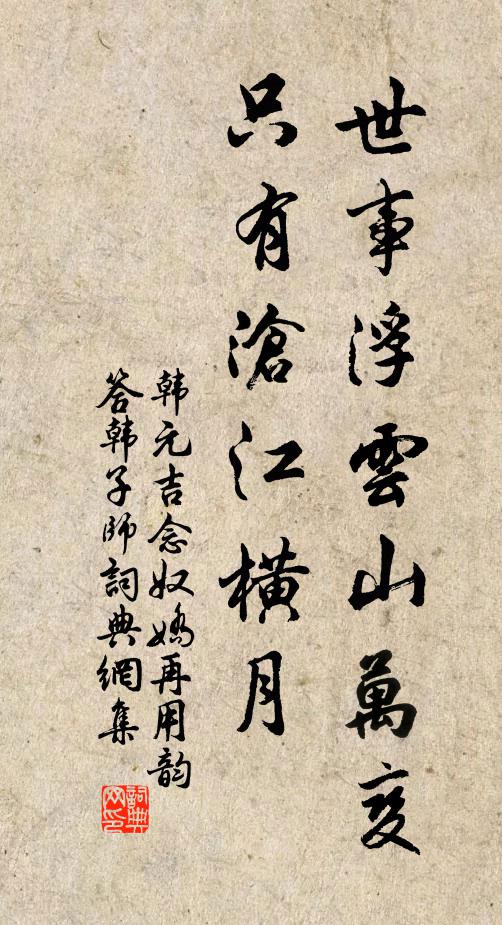 世事浮雲山萬变
只有滄江橫月
韩元吉念奴嬌再用韵
答韩子師詞典網集
詞典网印